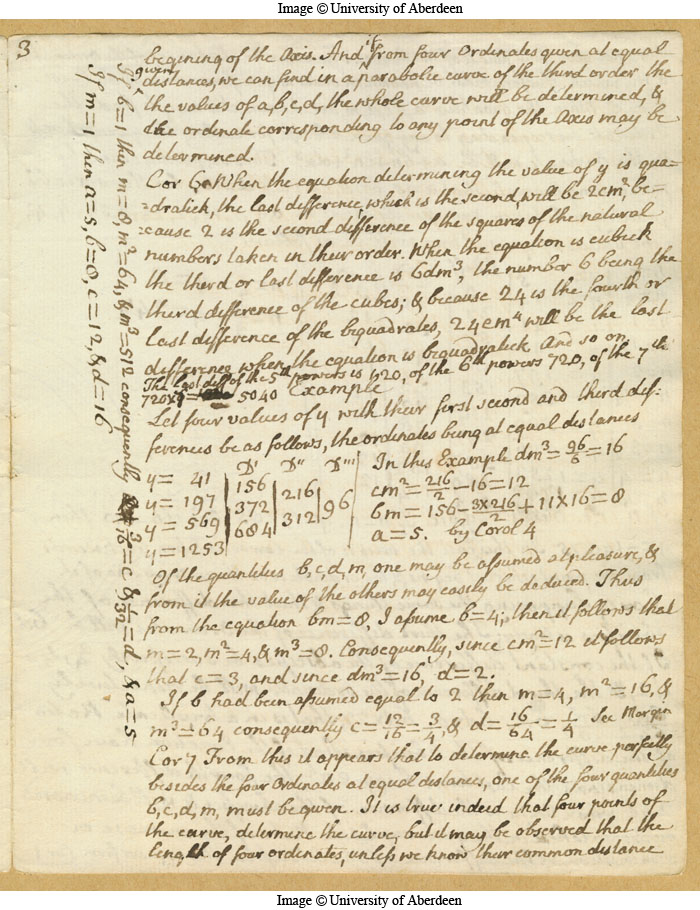 Image © University of Aberdeen
3
begining of the Axis. And if from four Ordinates given at equal
given distances, we can find in a parabolic curve of the third order the
the values of a, b, c, d, the whole curve will be determined, &
the ordinate corresponding to any point of the Axis may be
determined.
Cor 6. When the equation determining the value of y is qua=
=dratick, the last difference, which is the second, will be 2cm², be=
=cause 2 is the second difference of the squares of the natural
numbers taken in their order. When the equation is cubick
the third or last difference is 6dm³, the number 6 being the
third difference of the cubes; & because 24 is the fourth or
last difference of the biquadrates, 24em⁴ will be the last
difference when the equation is biquadratick And so on
The last diff. of the 5th powers is 120, of the 6th powers 720, of the 7th
720x7= 5040 Example
Let four values of y with their first second and third dif=
ferences be as follows, the ordinates being at equal distances
D' D'' D'''
y= 41
y= 197
y= 569
y=1253
156
372
684
216
312
96
In this Example dm³=96/6=16
cm²=216/2-16=12
bm=156-3X216/2+11X16=8
a=5. by Corol 4
Of the quantities b, c, d, m, one may be assumed at pleasure, &
from it the value of the others may easily be deduced. Thus
from the equation bm=8, I assume b=4; then it follows that
m=2, m²=4, & m³=8. Consequently, since cm²=12 it follows
that c=3, and since dm³=16, d=2.
If b had been assumed equal to 2 then m=4, m²=16, &
m³=64 consequently c=12/16=3/4, & d=16/64=1/4 See Margin
Cor 7 From this it appears that to determine the curve perfectly
besides the four Ordinates at equal distances, one of the four quantities
b, c, d, m, must be given. It is true indeed that four points of
the curve, determine the curve, but it may be observed that the
length of four ordinates, unless we know their common distance
If b=1 then m=8, m²=64, & m³=512 consequently 3/16=c & 1/32=d, & a=5
If m=1 then a=5, b=8, c=12, & d=16
Image © University of Aberdeen